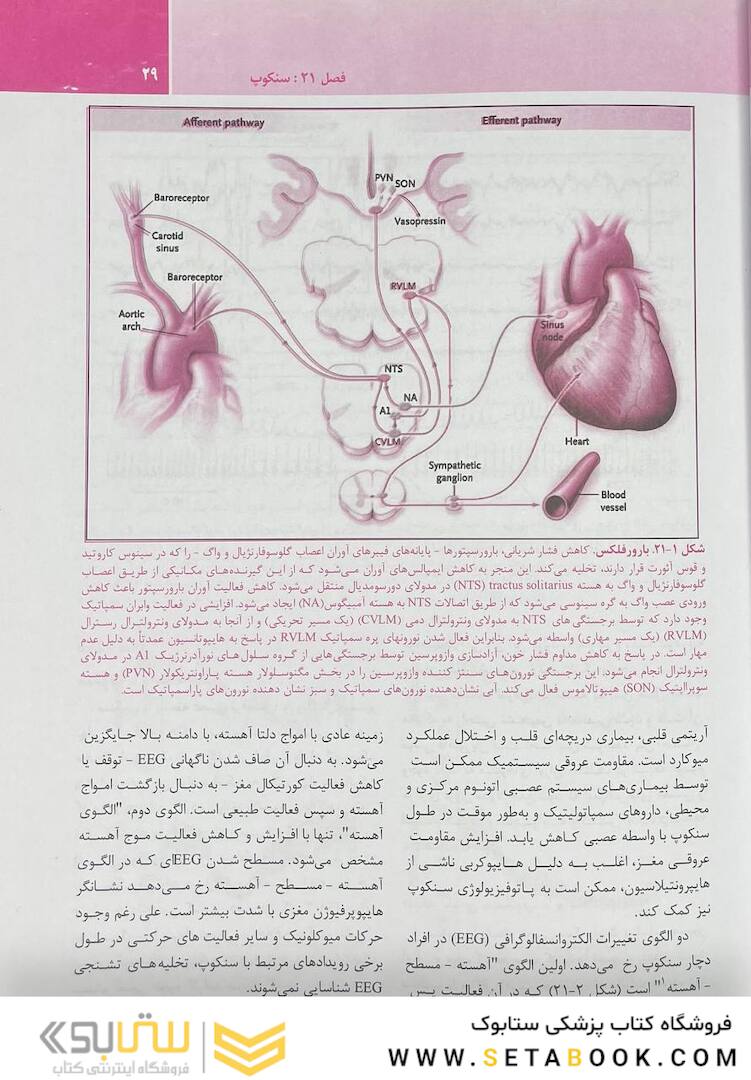 فصل ۲۱ : سنکوپ
۲۹
Afferent pathway
Efferent pathway
PVN
SON
Vasopressin
Baroreceptor
Carotid
sinus
Baroreceptor
Aortic
arch
RVLM
Sinus
node
NTS
NA
A1
CVLM
Heart
Sympathetic
ganglion
Blood
vessel
شکل ۱-۲۱. بارورفلکس. کاهش فشار شریانی، بارورسپتورها - پایانه‌های فیبرهای آوران اعصاب گلوسوفارنژیال و واگ - را که در سینوس کاروتید
و قوس آئورت قرار دارند، تخلیه می‌کند. این منجر به کاهش ایمپالس‌های آوران می‌شود که از این گیرنده‌های مکانیکی از طریق اعصاب
گلوسوفارنژیال و واگ به هسته tractus solitarius (NTS) در مدولای دورسومدیال منتقل می‌شود. کاهش فعالیت آوران بارورسپتور باعث کاهش
ورودی عصب واگ به گره سینوسی می‌شود که از طریق اتصالات NTS به هسته آمبیگوس (NA) ایجاد می‌شود. افزایشی در فعالیت وابران سمپاتیک
وجود دارد که توسط برجستگی های NTS به مدولای ونترولترال دمی (CVLM) (یک مسیر تحریکی) و از آنجا به مدولای ونترولترال رسترال
(RVLM) (یک مسیر مهاری) واسطه می‌شود. بنابراین فعال شدن نورونهای پره سمپاتیک RVLM در پاسخ به هایپوتانسیون عمدتاً به دلیل عدم
مهار است. در پاسخ به کاهش مداوم فشار خون، آزادسازی وازوپرسین توسط برجستگی‌هایی از گروه سلول‌های نورآدرنرژیک A1 در مدولای
ونترولترال انجام می‌شود. این برجستگی نورون‌های سنتز کننده وازوپرسین را در بخش مگنوسلولار هسته پاراونتریکولار (PVN) و هسته
سوپرااپتیک (SON) هیپوتالاموس فعال می‌کند. آبی نشان‌دهنده نورون‌های سمپاتیک و سبز نشان دهنده نورون‌های پاراسمپاتیک است.
آریتمی قلبی، بیماری دریچه‌ای قلب و اختلال عملکرد
میوکارد است. مقاومت عروقی سیستمیک ممکن است
توسط بیماری‌های سیستم عصبی اتونوم مرکزی و
محیطی، داروهای سمپاتولیتیک و به‌طور موقت در طول
سنکوپ با واسطه عصبی کاهش یابد. افزایش مقاومت
عروقی مغز، اغلب به دلیل هایپوکربی ناشی از
هایپرونتیلاسیون، ممکن است به پاتوفیزیولوژی سنکوپ
نیز کمک کند.
دو الگوی تغییرات الکتروانسفالوگرافی (EEG) در افراد
دچار سنکوپ رخ می‌دهد. اولین الگوی "آهسته - مسطح
- آهسته۱" است (شکل ۲-۲۱) که در آن فعالیت پس
زمینه عادی با امواج دلتا آهسته، با دامنه بالا جایگزین
می‌شود. به دنبال آن صاف شدن ناگهانی EEG - توقف یا
کاهش فعالیت کورتیکال مغز - به دنبال بازگشت امواج
آهسته و سپس فعالیت طبیعی است. الگوی دوم، "الگوی
آهسته"، تنها با افزایش و کاهش فعالیت موج آهسته
مشخص می‌شود. مسطح شدن EEGای که در الگوی
آهسته - مسطح - آهسته رخ می‌دهد نشانگر
هایپوپرفیوژن مغزی با شدت بیشتر است. علی رغم وجود
حرکات میوکلونیک و سایر فعالیت های حرکتی در طول
برخی رویدادهای مرتبط با سنکوپ، تخلیه‌های تشنجی
EEG شناسایی نمی‌شوند.
فروشگاه کتاب پزشکی ستابوک
WWW.SETABOOK.COM
ستابوک
فروشگاه اینترنتی کتاب